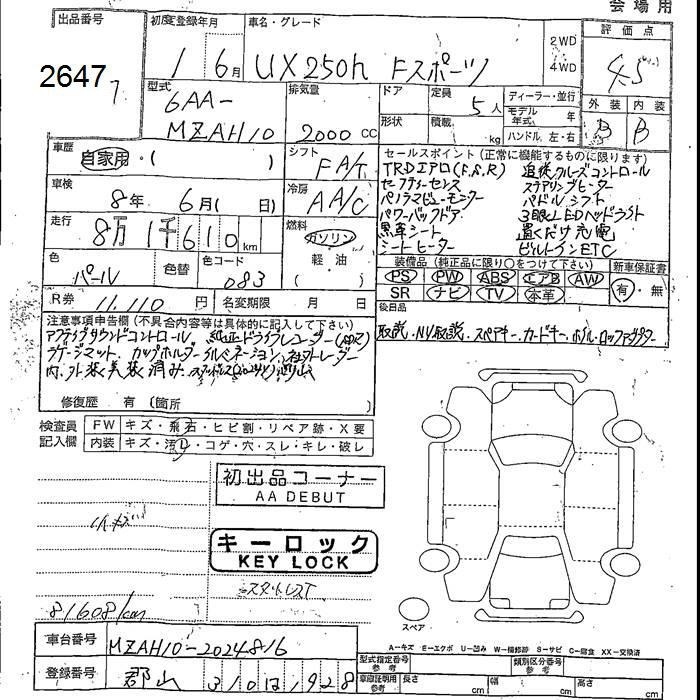 会場用
出品番号
2647
初度登録年月
1 6月
車名・グレード
UX250h Fスポーツ
2WD
4WD
評価点
4.5
型式
6AA-
MZAH10
排気量
2000 CC
ドア
形状
定員
5人
積載
kg
ディーラー・並行
モデル年式 年
ハンドル 左・右
外装 内装
B B
車歴
自家用・( )
シフト
FA/T
車検
8年 6月( 日)
冷房
AA/C
走行
8万1千610km
燃料
ガソリン
軽油
( )
色
パール
色替
色コード
083
R券
11,110円
名変期限 月 日
セールスポイント(正常に機能するものに限ります)
TRDエアロ(F,S,R) 追従クルーズコントロール
セーフティーセンス ステアリングヒーター
パノラマビューモニター パドルシフト
パワーバックドア 3眼LEDヘッドライト
黒革シート 置くだけ充電
シートヒーター ビルトインETC
装備品(純正品に限り○をつけて下さい)
新車保証書
PS PW ABS エアB AW
SR ナビ TV 本革
有・無
後日品
取説・NV取説・スペアキー・カードキー・ホイルロックアダプター
注意事項申告欄(不具合内容等は具体的に記入して下さい)
アクティブサウンドコントロール、純正ドライブレコーダー
ラゲージマット、カップホルダーイルミネーション、社外レーダー
内、外装美装済み、
修復歴 有 (箇所 )
検査員記入欄
FW キズ・飛石・ヒビ割・リペア跡・X要
内装 キズ・汚れ・コゲ・穴・スレ・キレ・破レ
初出品コーナー
AA DEBUT
小キズ
キーロック
KEY LOCK
スタットレスT
81608km
スペア
A=キズ E=エクボ U=凹み W=補修跡 S=サビ C=腐食 XX=交換済
車台番号
MZAH10-2024816
登録番号
郡山 310は1928
型式指定番号 参考
類別区分番号 参考
車庫証明用 参考
長さ cm
幅 cm
高さ cm